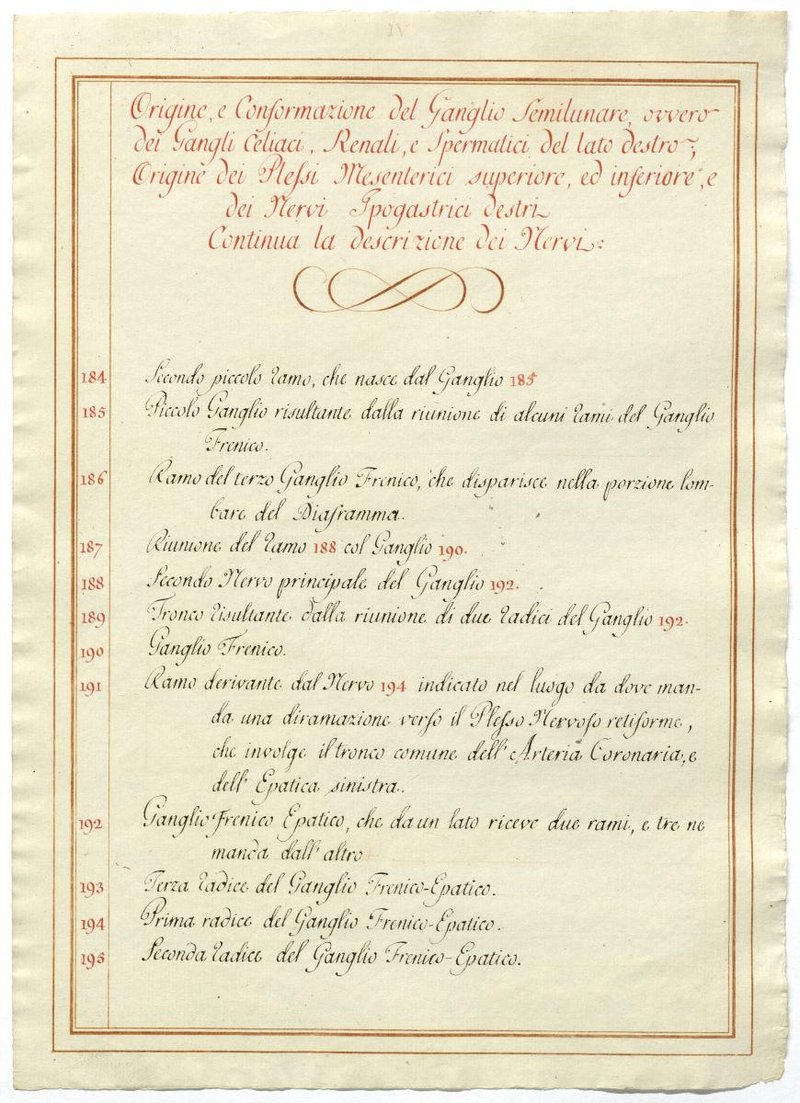 IV
Origine, e Conformazione del Ganglio Semilunare, ovvero
dei Gangli Celiaci, Renali, e Spermatici del lato destro;
Origine dei Plessi Mesenterici superiore, ed inferiore, e
dei Nervi Ipogastrici destri
Continua la descrizione dei Nervi:
184 Secondo piccolo ramo, che nasce dal Ganglio 185
185 Piccolo Ganglio risultante dalla riunione di alcuni rami del Ganglio
Frenico.
186 Ramo del terzo Ganglio Frenico, che disparisce nella porzione lom-
bare del Diaframma.
187 Riunione del ramo 188 col Ganglio 190.
188 Secondo Nervo principale del Ganglio 192.
189 Tronco risultante dalla riunione di due radici del Ganglio 192.
190 Ganglio Frenico.
191 Ramo derivante dal Nervo 194 indicato nel luogo da dove man-
da una diramazione verso il Plesso Nervoso retiforme,
che involge il tronco comune dell' Arteria Coronaria, e
dell' Epatica sinistra.
192 Ganglio Frenico Epatico, che da un lato riceve due rami, e tre ne
manda dall' altro
193 Terza radice del Ganglio Frenico-Epatico.
194 Prima radice del Ganglio Frenico-Epatico.
195 Seconda radice del Ganglio Frenico-Epatico.